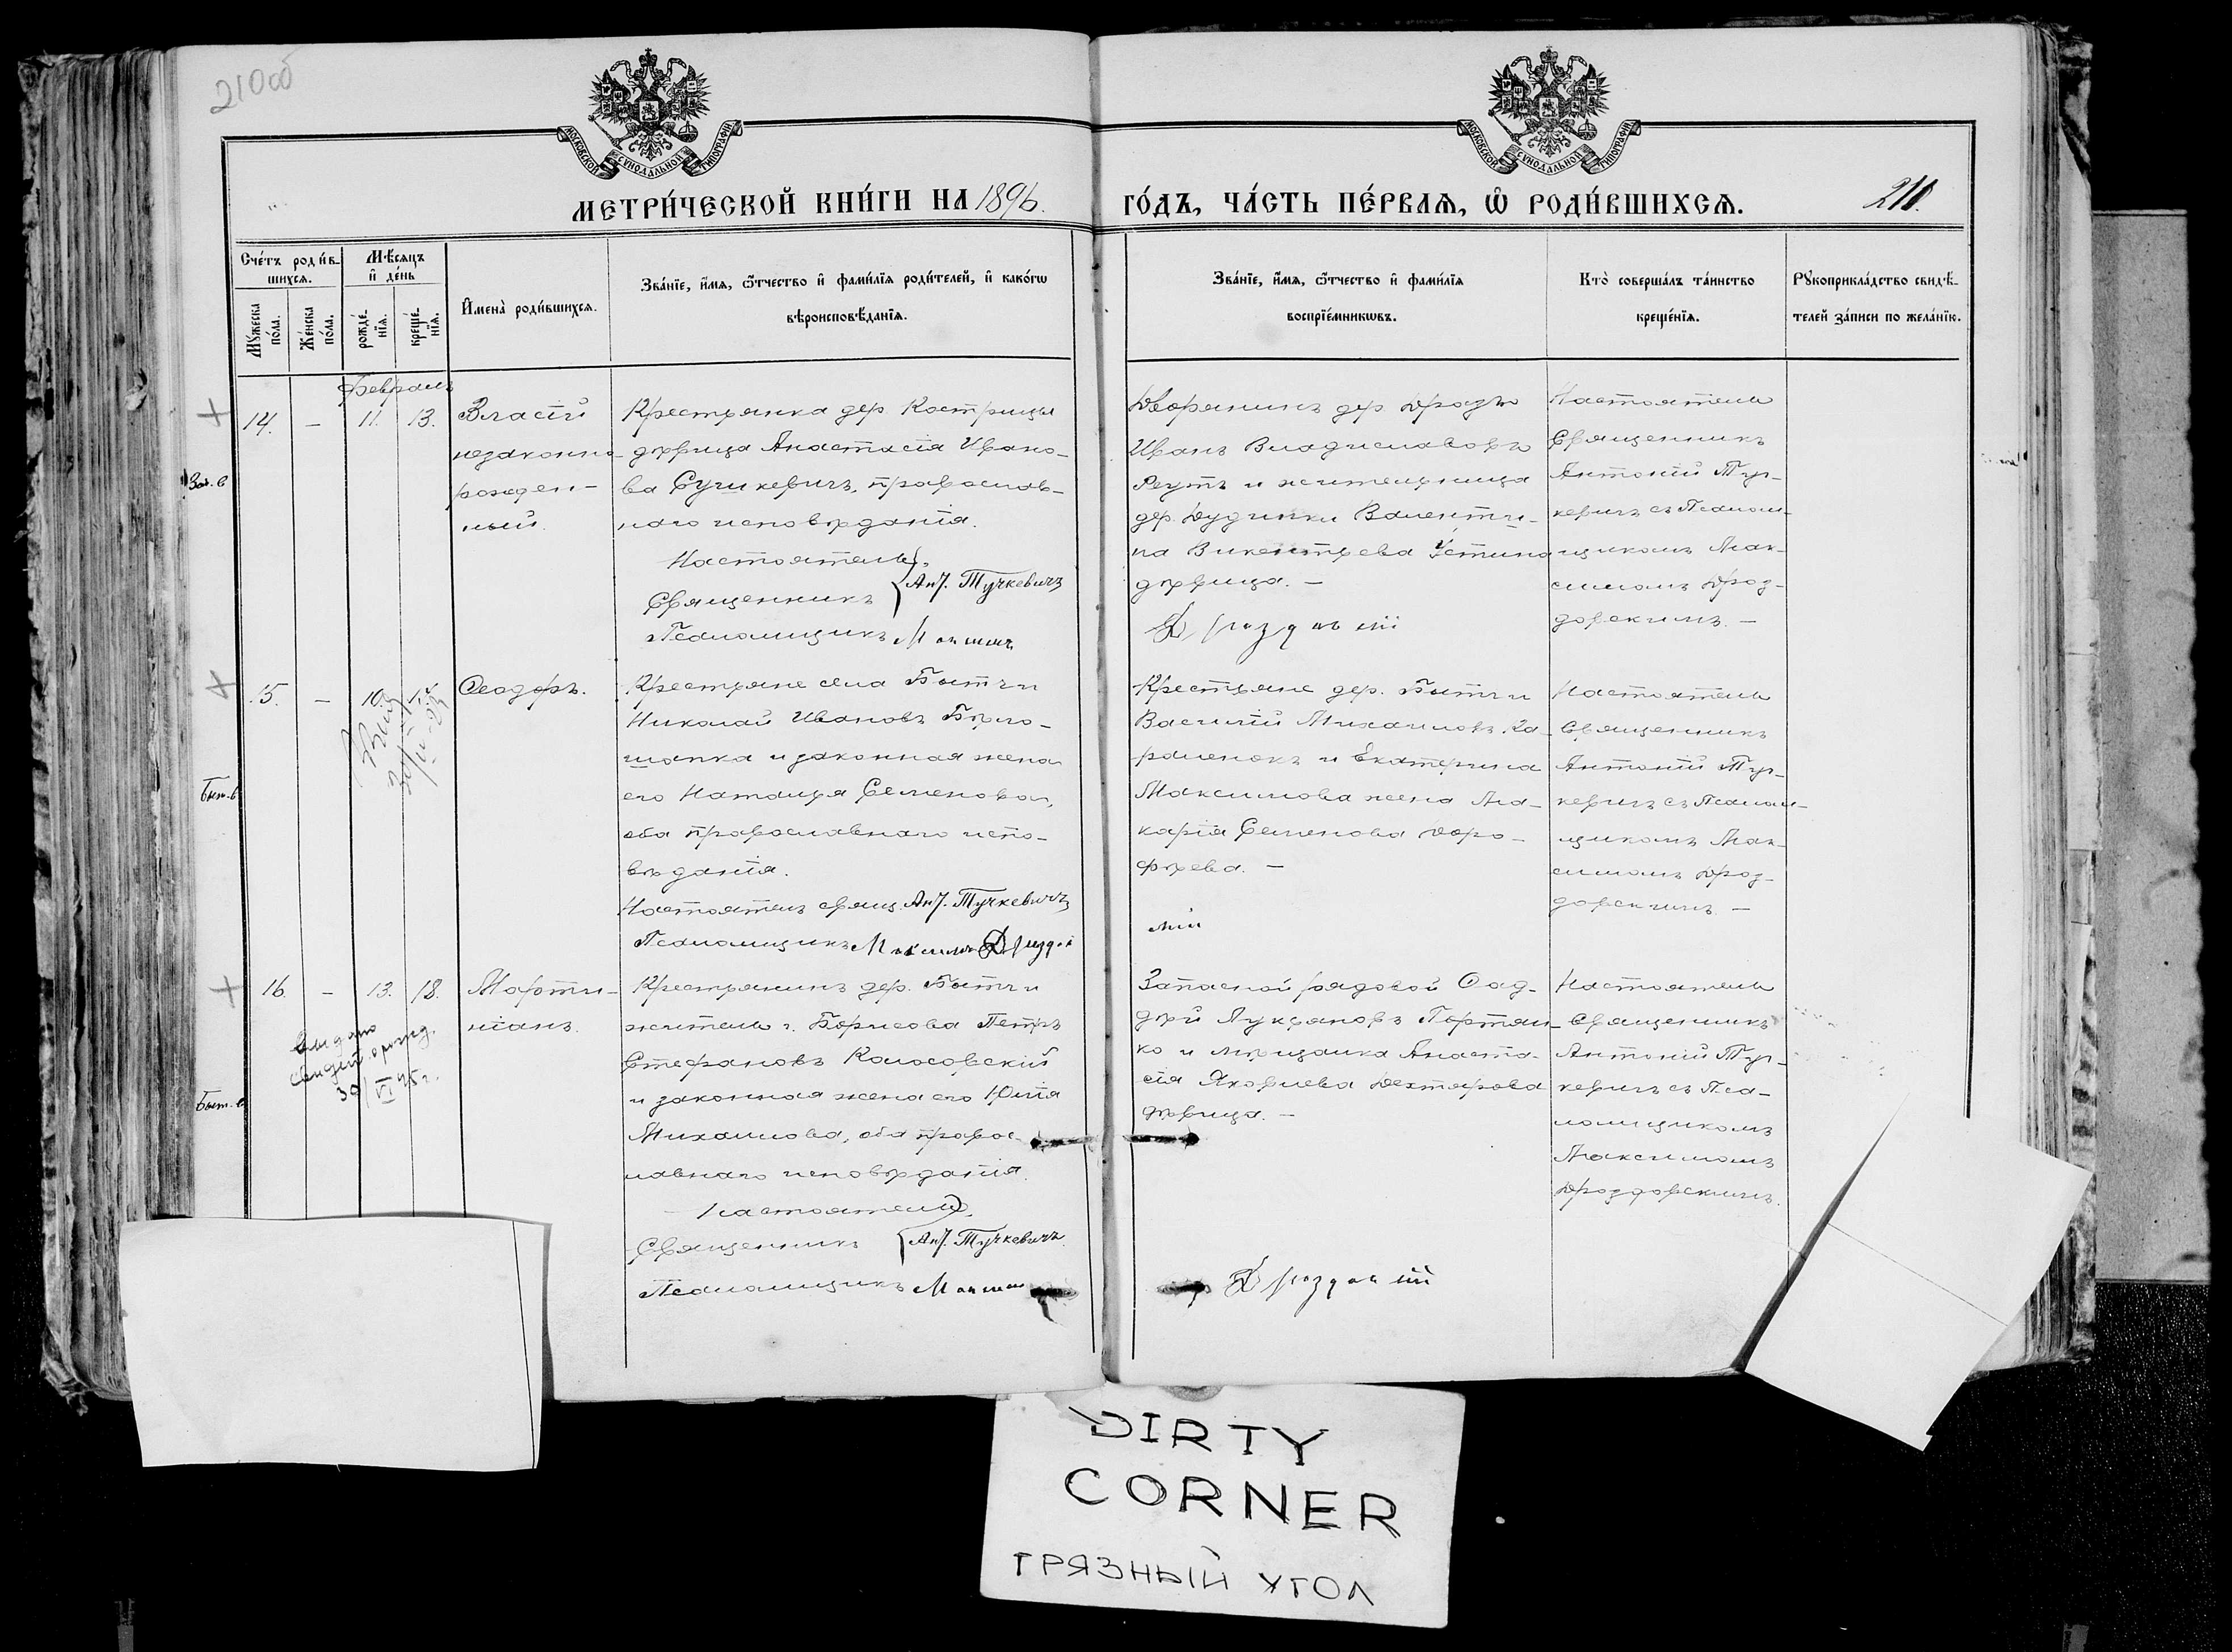 210об
МОСКОВСКОЙ СѴНОДАЛЬНОЙ ТИПОГРАФІИ
МОСКОВСКОЙ СѴНОДАЛЬНОЙ ТИПОГРАФІИ
МЕТРИ́ЧЕСКОЙ КНИ́ГИ НА 1896.
ГО́ДЪ, ЧА́СТЬ ПЕ́РВАѦ, Ѡ҆ РОДИ́ВШИХСѦ.
Сче́тъ роди́в-
шихсѧ.
Мꙋ́жеска по́ла.
Же́нска по́ла.
Мѣ́сѧцъ и҆ де́нь
рожде́-нїѧ.
креще́-нїѧ.
И҆мена̀ роди́вшихсѧ.
Зва́нїе, и҆́мѧ, ѻ҆́тчество и҆ фами́лїѧ роди́телей, и҆ како́гѡ
вѣроисповѣ́данїѧ.
Зва́нїе, и҆́мѧ, ѻ҆́тчество и҆ фами́лїѧ
воспрїе́мникѡвъ.
Кто̀ соверша́лъ та́инство
креще́нїѧ.
Рꙋкоприкла́дство свидѣ́-
телей за́писи по жела́нїю.
Февраль
14. – 11. 13.
Власій
незаконно-
рожден-
ный.
Крестьянка дер. Кострицы
дѣвица Анастасія Ивано-
ва Сучкевичъ, православ-
наго исповѣданія.
Настоятель
Священникъ Ант. Тучкевичъ
Псаломщикъ Максимъ
Дворянинъ дер.
Иванъ Владиславовъ
Реутъ и жительница
дер. Дудинки Валенти-
на Викентьева Устина
дѣвица. –
Дроздовскій
Настоятель
Священникъ
Антоній Туч-
кевичъ съ Псалом-
щикомъ Мак-
симомъ Дроз-
довскимъ. –
15. – 10.
Ѳеодоръ.
Быт.-в
Крестьяне села Бытчи
Николай Ивановъ Бѣло-
шапка и законная жена
его Наталья Семенова,
оба православнаго испо-
вѣданія.
Настоятель свящ. Ант. Тучкевичъ
Псаломщикъ Максимъ Дроздов
Крестьяне дер. Бытчи
Василій Михаиловъ Ка-
раленокъ и Екатерина
Максимова жена Ма-
карія Семенова Доро-
фѣева. –
скій
Настоятель
Священникъ
Антоній Туч-
кевичъ съ Псалом-
щикомъ Мак-
симомъ Дроз-
довскимъ. –
16. – 13. 18.
Марти-
ніанъ.
Выдано
свидет. о рожд.
30/VI 45 г.
Быт.-в
Крестьянинъ дер. Бытчи
житель г. Борисова Петръ
Стефановъ Колосовскій
и законная жена его Юлія
Михаилова, оба правос-
лавнаго исповѣданія.
Настоятель
Священникъ Ант. Тучкевичъ
Псаломщикъ Максим
Запасной рядовой Ѳад-
дѣй Лукьяновъ Портян-
ко и мѣщанка Анаста-
сія Яковлева Дехтярова
дѣвица. –
Дроздовскій
Настоятель
Священникъ
Антоній Туч-
кевичъ съ Пса-
ломщикомъ
Максимомъ
Дроздовскимъ.
DIRTY
CORNER
ГРЯЗНЫЙ УГОЛ